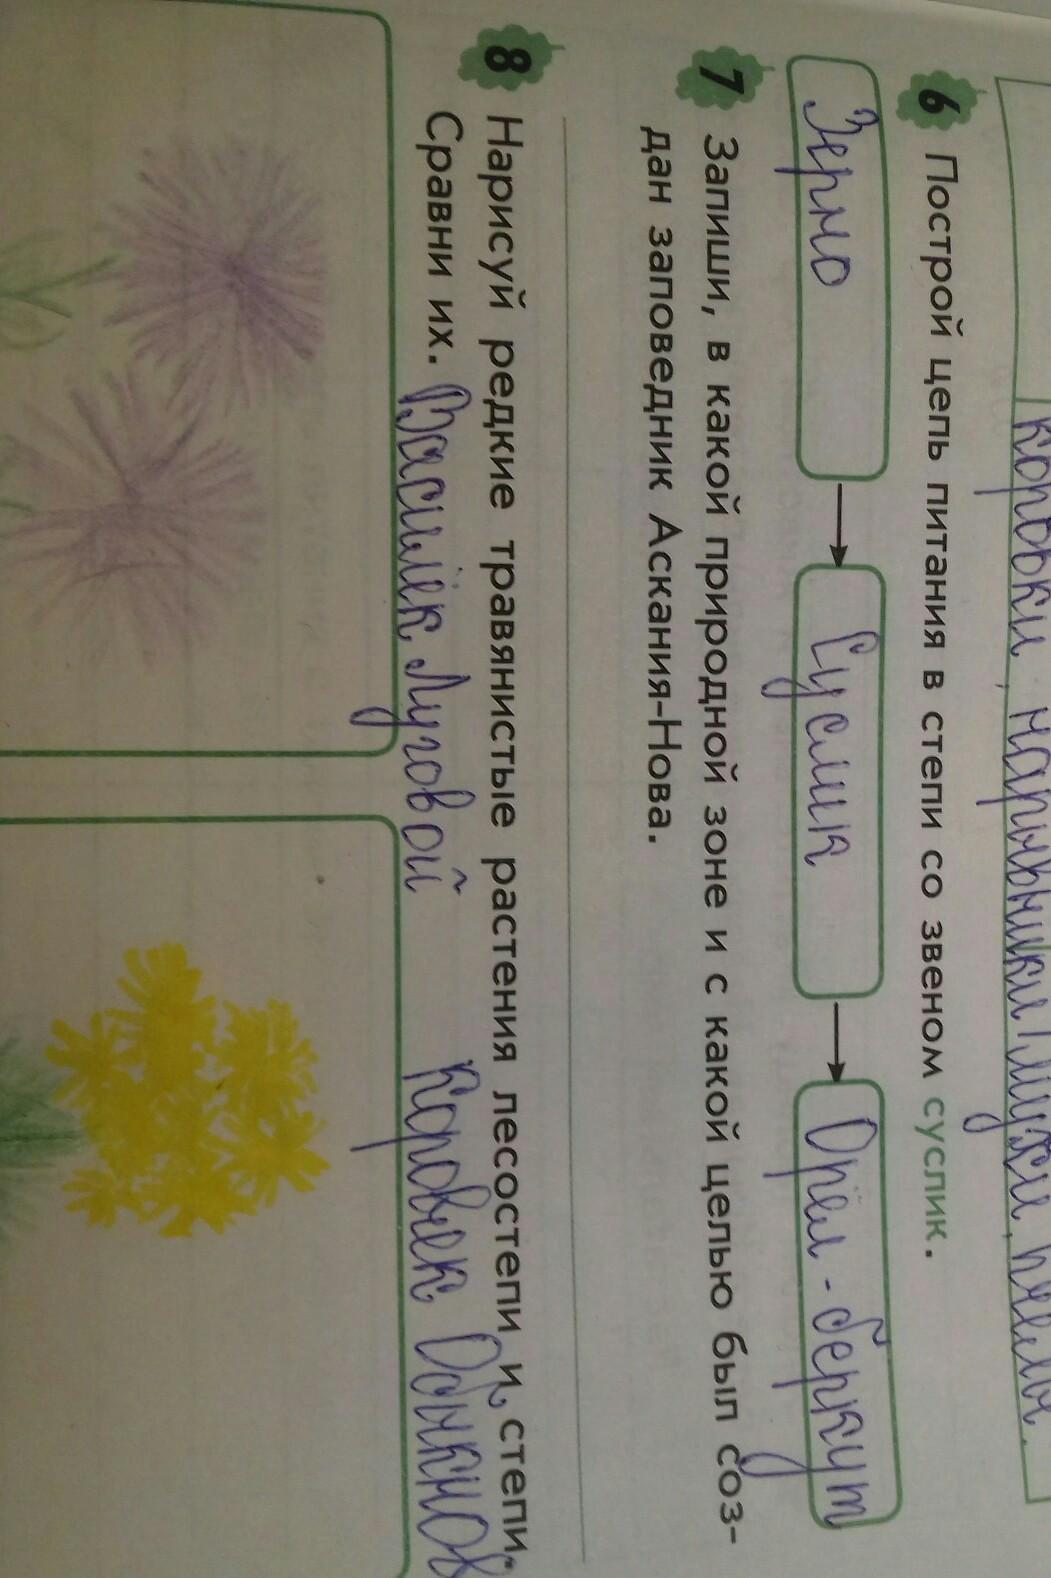 коровки, нарывники, мухи, пчелы.
6 Построй цепь питания в степи со звеном суслик.
Зерно
Суслик
Орёл-беркут
7 Запиши, в какой природной зоне и с какой целью был соз-
дан заповедник Аскания-Нова.
8 Нарисуй редкие травянистые растения лесостепи и степи.
Сравни их. Василёк Луговой